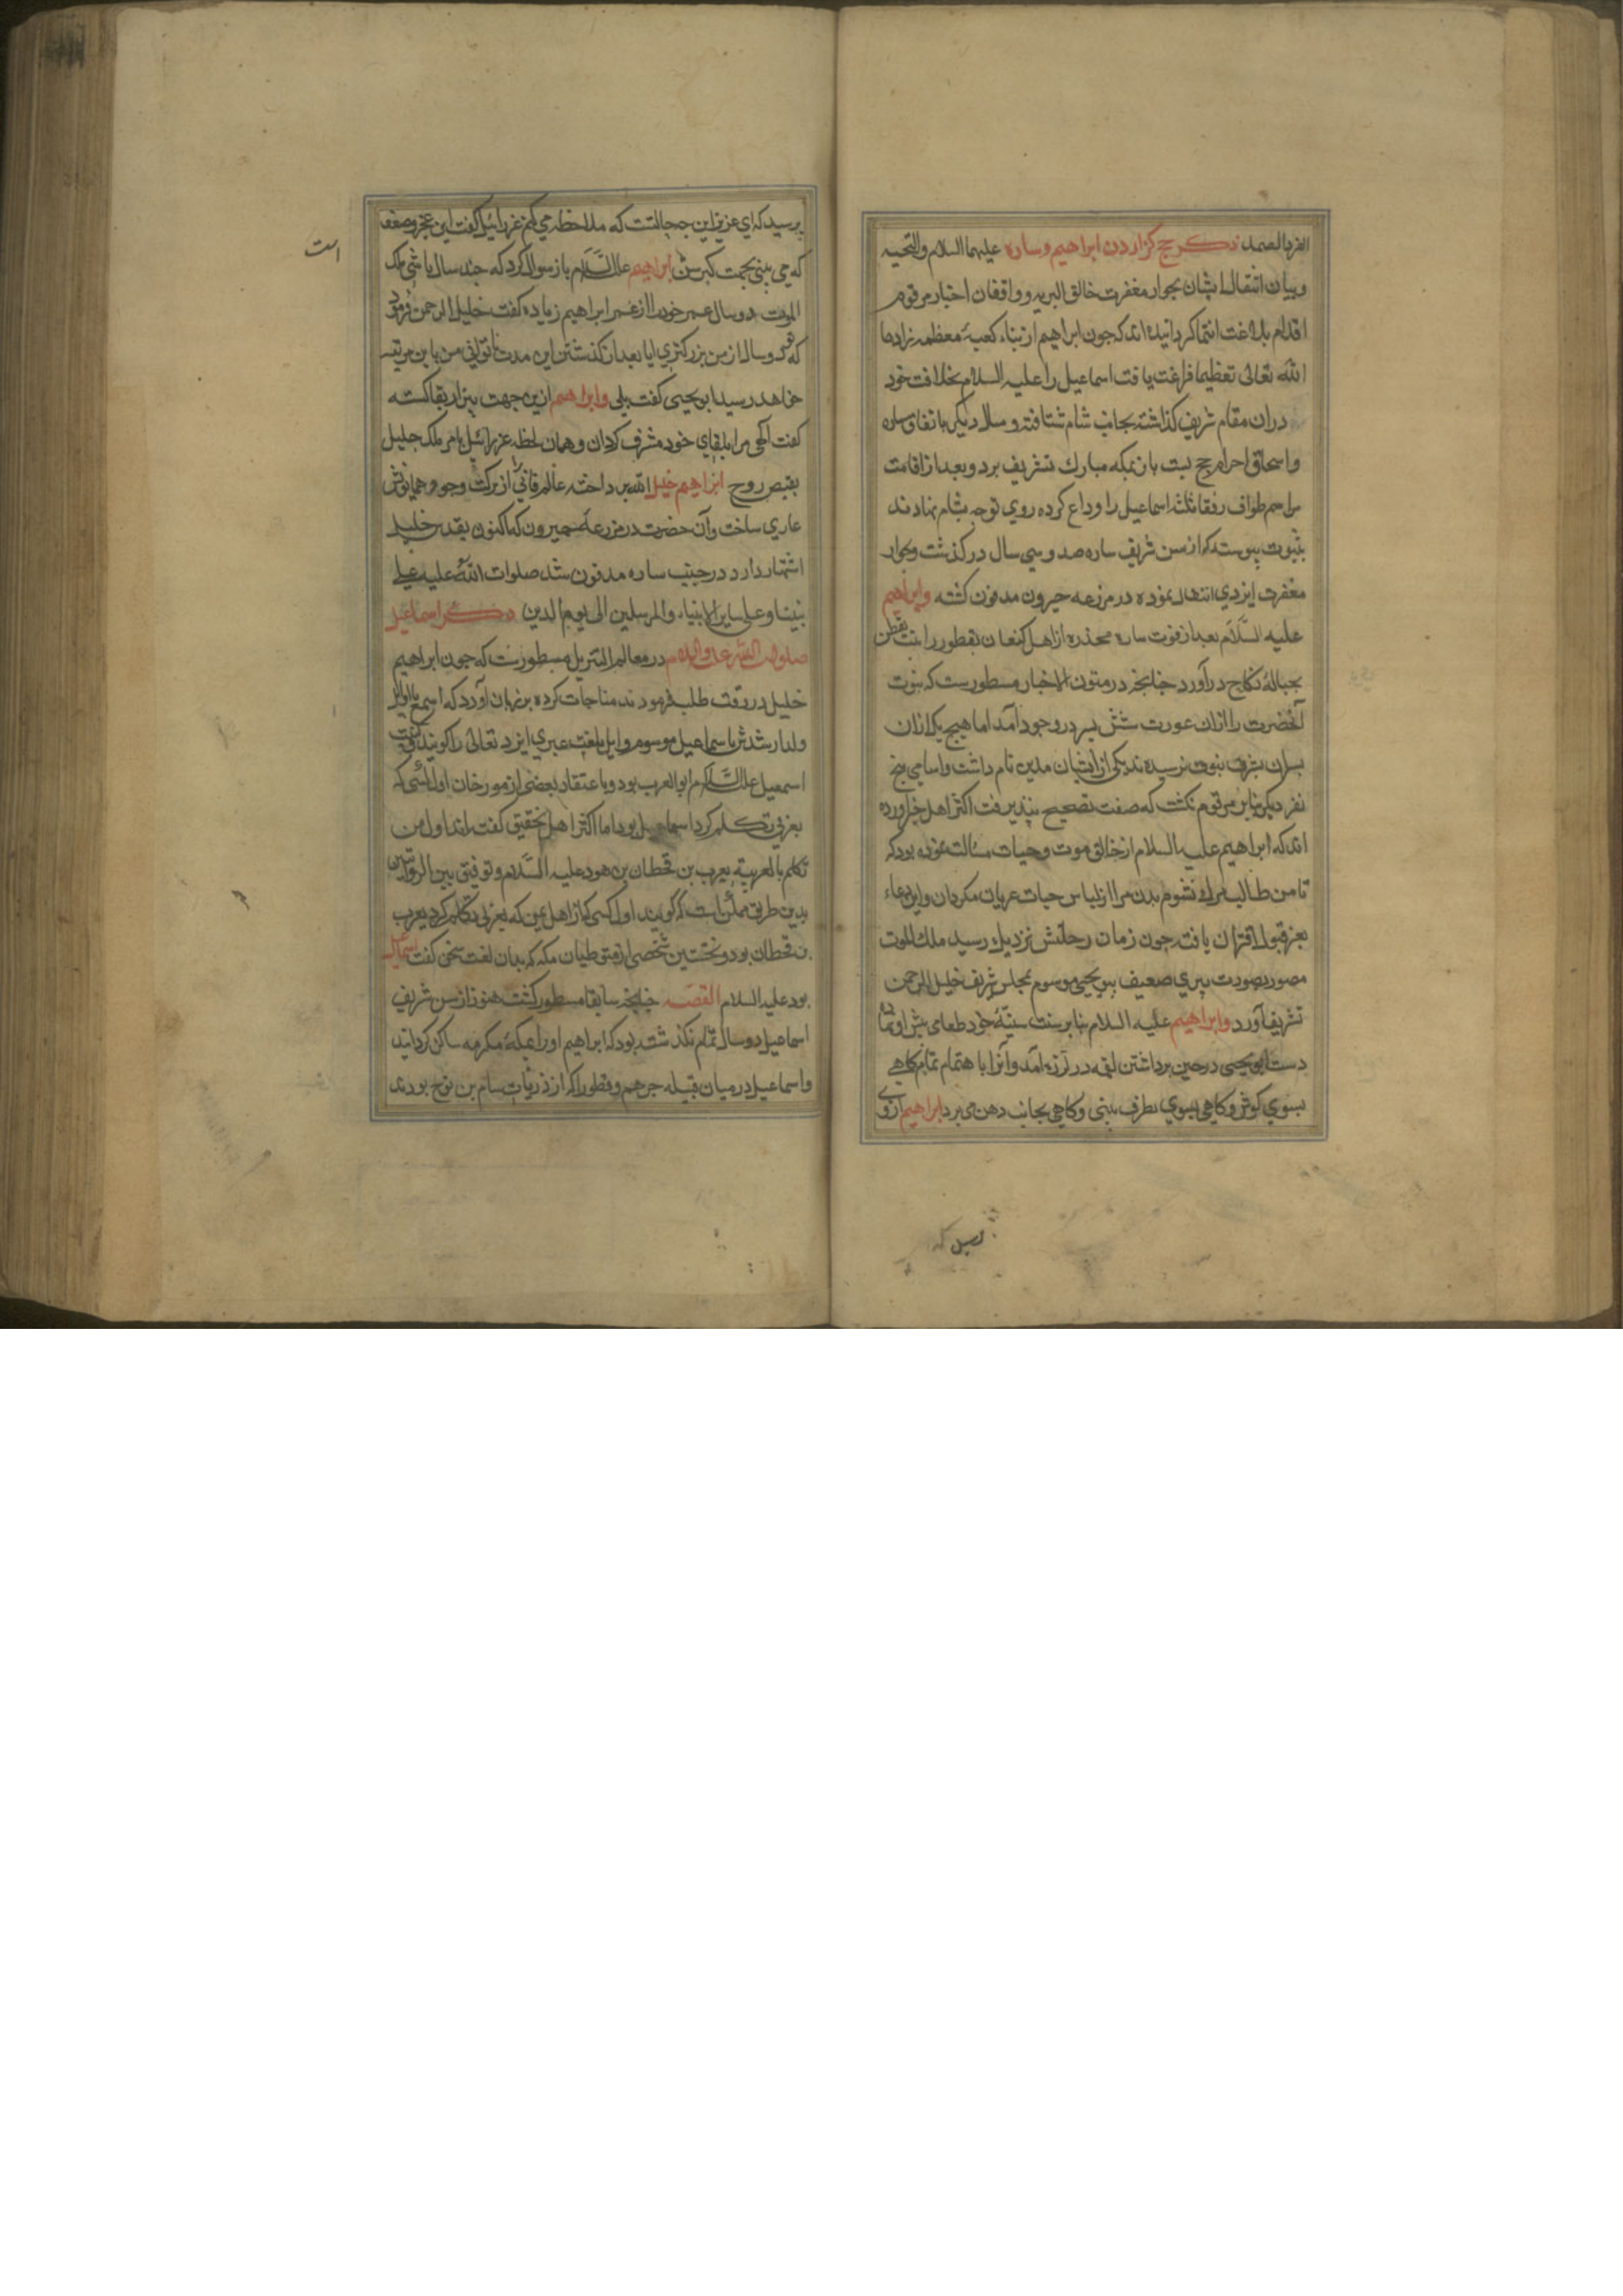 العزیز الصمد ذکر حج کزاردن ابراهیم وساره علیهما السلام والتحیه
وبیان انتقال ایشان بجوار مغفرت خالق البریه وواقفان اخبار مرقوم
اقلام بلاغت انتما کردانیده اند که جون ابراهیم از بناء کعبهٔ معظمه زادها
الله تعالی تعظیما فراغت یافت اسماعیل را علیه السلام بخلافت خود
دران مقام شریف کذاشته بجانب شام شتافت و سال دیکر باتفاق ساره
واسحاق احرام حج بست بان بمکه مبارك تشریف برد وبعد از اقامت
مراسم طواف رفقا ثلثه اسماعیل را وداع کرده روی توجه بشام نهادند
بثبوت پیوسته که از سن شریف ساره صد وسی سال درکذشت وبجوار
مغفرت ایزدی انتقال نموده در مزرعه حیرون مدفون کشته وابراهیم
علیه السلام بعد از فوت ساره مخدره از اهل کنعان بقطورا بنت یقطن
بحبالهٔ نکاح درآورد جنانجه در متون الاخبار مسطورست که بنوت
آنحضرت را ازان عورت شش پسر دروجود آمد اما هیچ یک ازان
پسران بشرف نبوت نرسیدند یکی از ایشان مدین نام داشت واسامی پنج
نفر دیکر بنابر مرقوم نکشت که صفت تصحیح نپذیرفت اکثر اهل خبر آورده
اند که ابراهیم علیه السلام از خالق موت وحیات مسالت نموده بود که
تا من طالب مرك نشوم بدن مرا از لباس حیات عریان مکردان واین دعاء
بعز قبول اقتران یافته جون زمان رحلتش نزدیك رسید ملك الموت
مصور بصورت پیری ضعیف بابو یحیی موسوم بمجلس شریف خلیل الرحمن
تشریف آورد وابراهیم علیه السلام بنابر سنت سنیهٔ خود طعامی پیش او نهاد
دست ابو یحیی در حین برداشتن لقمه در لرزه آمد وآنرا باهتمام تمام کاهی
بسوی کوش وکاهی بسوی بطرف بینی وکاهی بجانب دهن می برد ابراهیم از وی
پرسید که ای عزیز این جه حالتست که ملاحظه می کنم عزرائیل کفت این عجز وضعف
که می بینی بجهت کبر سن ابراهیم علیه السلام باز سوال کرد که جند سال باشی ملک
الموت دو سال عمر خود را از عمر ابراهیم زیاده کفت خلیل الرحمن فرمود
که تو دو سال از من بزرکتری ایا بعد از کذشتن این مدت ناتوانی من باین مرتبه
خواهد رسید ابو یحیی کفت بلی وابراهیم ازین جهت بیزار بقا کشته
کفت الهی مرا بلقای خود مشرف کردان وهمان لحظه عزرائیل بامر ملک جلیل
بقبض روح ابراهیم خلیل الله پرداخته عالم فانی از برکت وجود همایونش
عاری ساخت وآن حضرت در مزرعه حیرون که اکنون بقدس خلیل
اشتهار دارد در جنب ساره مدفون شد صلوات الله علیه علی
نبینا وعلی سایر الانبیاء والمرسلین الی یوم الدین ذکر اسماعیل
صلوات الله علیه والسلام در معالم التنزیل مسطورست که جون ابراهیم
خلیل در وقت طلب فرمودند مناجات کرده بر زبان آورد که اسمع یا ایل
ولد ارشدش باسماعیل موسوم وایل بلغت عبری ایزد تعالی را کویند
اسمعیل علیه السلام ابو العرب بود وباعتقاد بعضی از مورخان اول کسی که
بعربی تکلم کرد اسماعیل بود اما اکثر اهل تحقیق کفته اند اول من
تکلم بالعربیة یعرب بن قحطان بن هود علیه السلام وتوفیق بین الروایتین
بدین طریق ممکن است که کویند اول کسی که از اهل یمن که بعربی تکلم کرد یعرب
بن قحطان بود ونخستین شخصی از متوطیان مکه که بدان لغت سخن کفت اسماعیل
بود علیه السلام القصه جنانجه سابقا مسطور کشت هنوز از سن شریف
اسماعیل دو سال تمام نکذشته بود که ابراهیم او را بمکهٔ مکرمه ساکن کردانید
واسماعیل در میان قبیله جرهم وقطورا که از ذریات سام بن نوح بودند